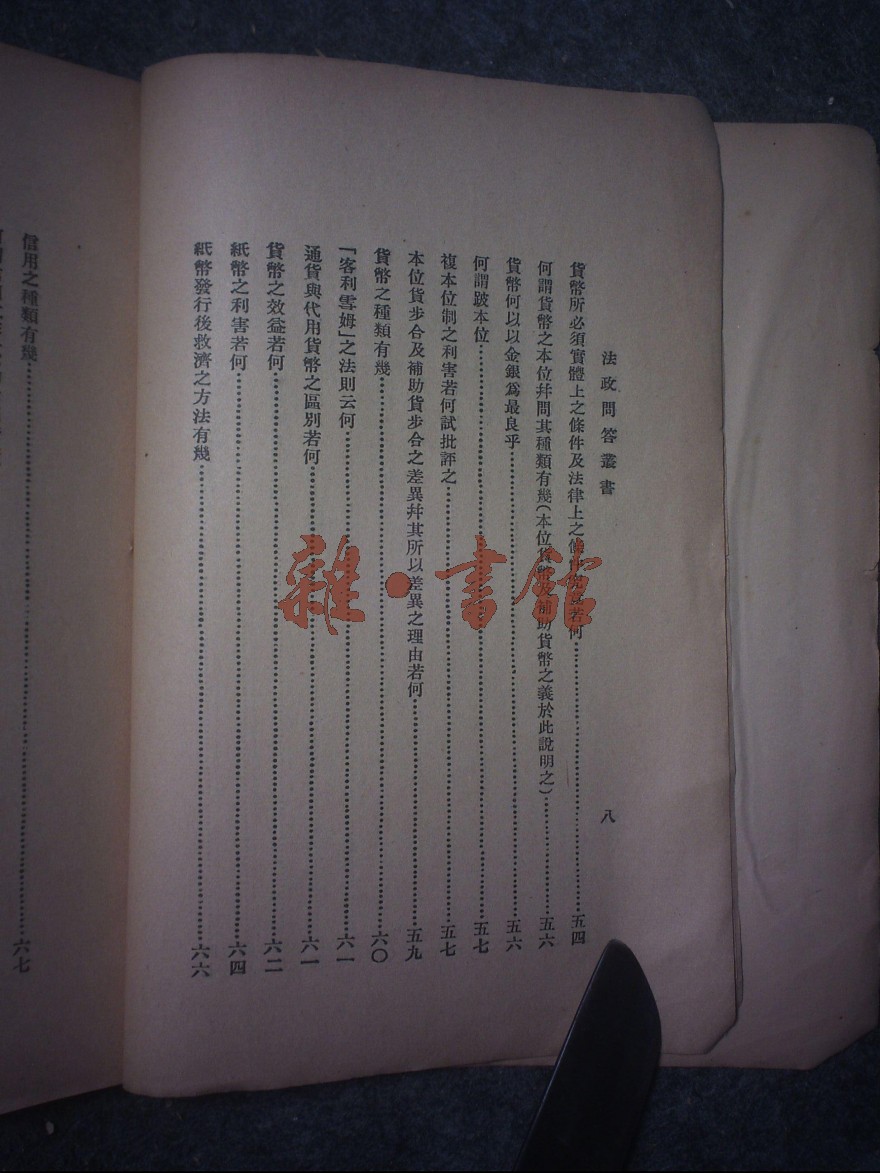 法政問答叢書
八
貨幣所必須實體上之條件及法律上之條件若何……五四
何謂貨幣之本位幷問其種類有幾(本位貨幣及補助貨幣之義於此說明之)……五六
貨幣何以以金銀爲最良乎……五六
何謂跛本位……五七
複本位制之利害若何試批評之……五七
本位貨步合及補助貨步合之差異幷其所以差異之理由若何……五九
貨幣之種類有幾……六〇
「客利雪姆」之法則云何……六一
通貨與代用貨幣之區別若何……六一
貨幣之效益若何……六二
紙幣之利害若何……六四
紙幣發行後救濟之方法有幾……六六
信用之種類有幾……六七
雜·書館